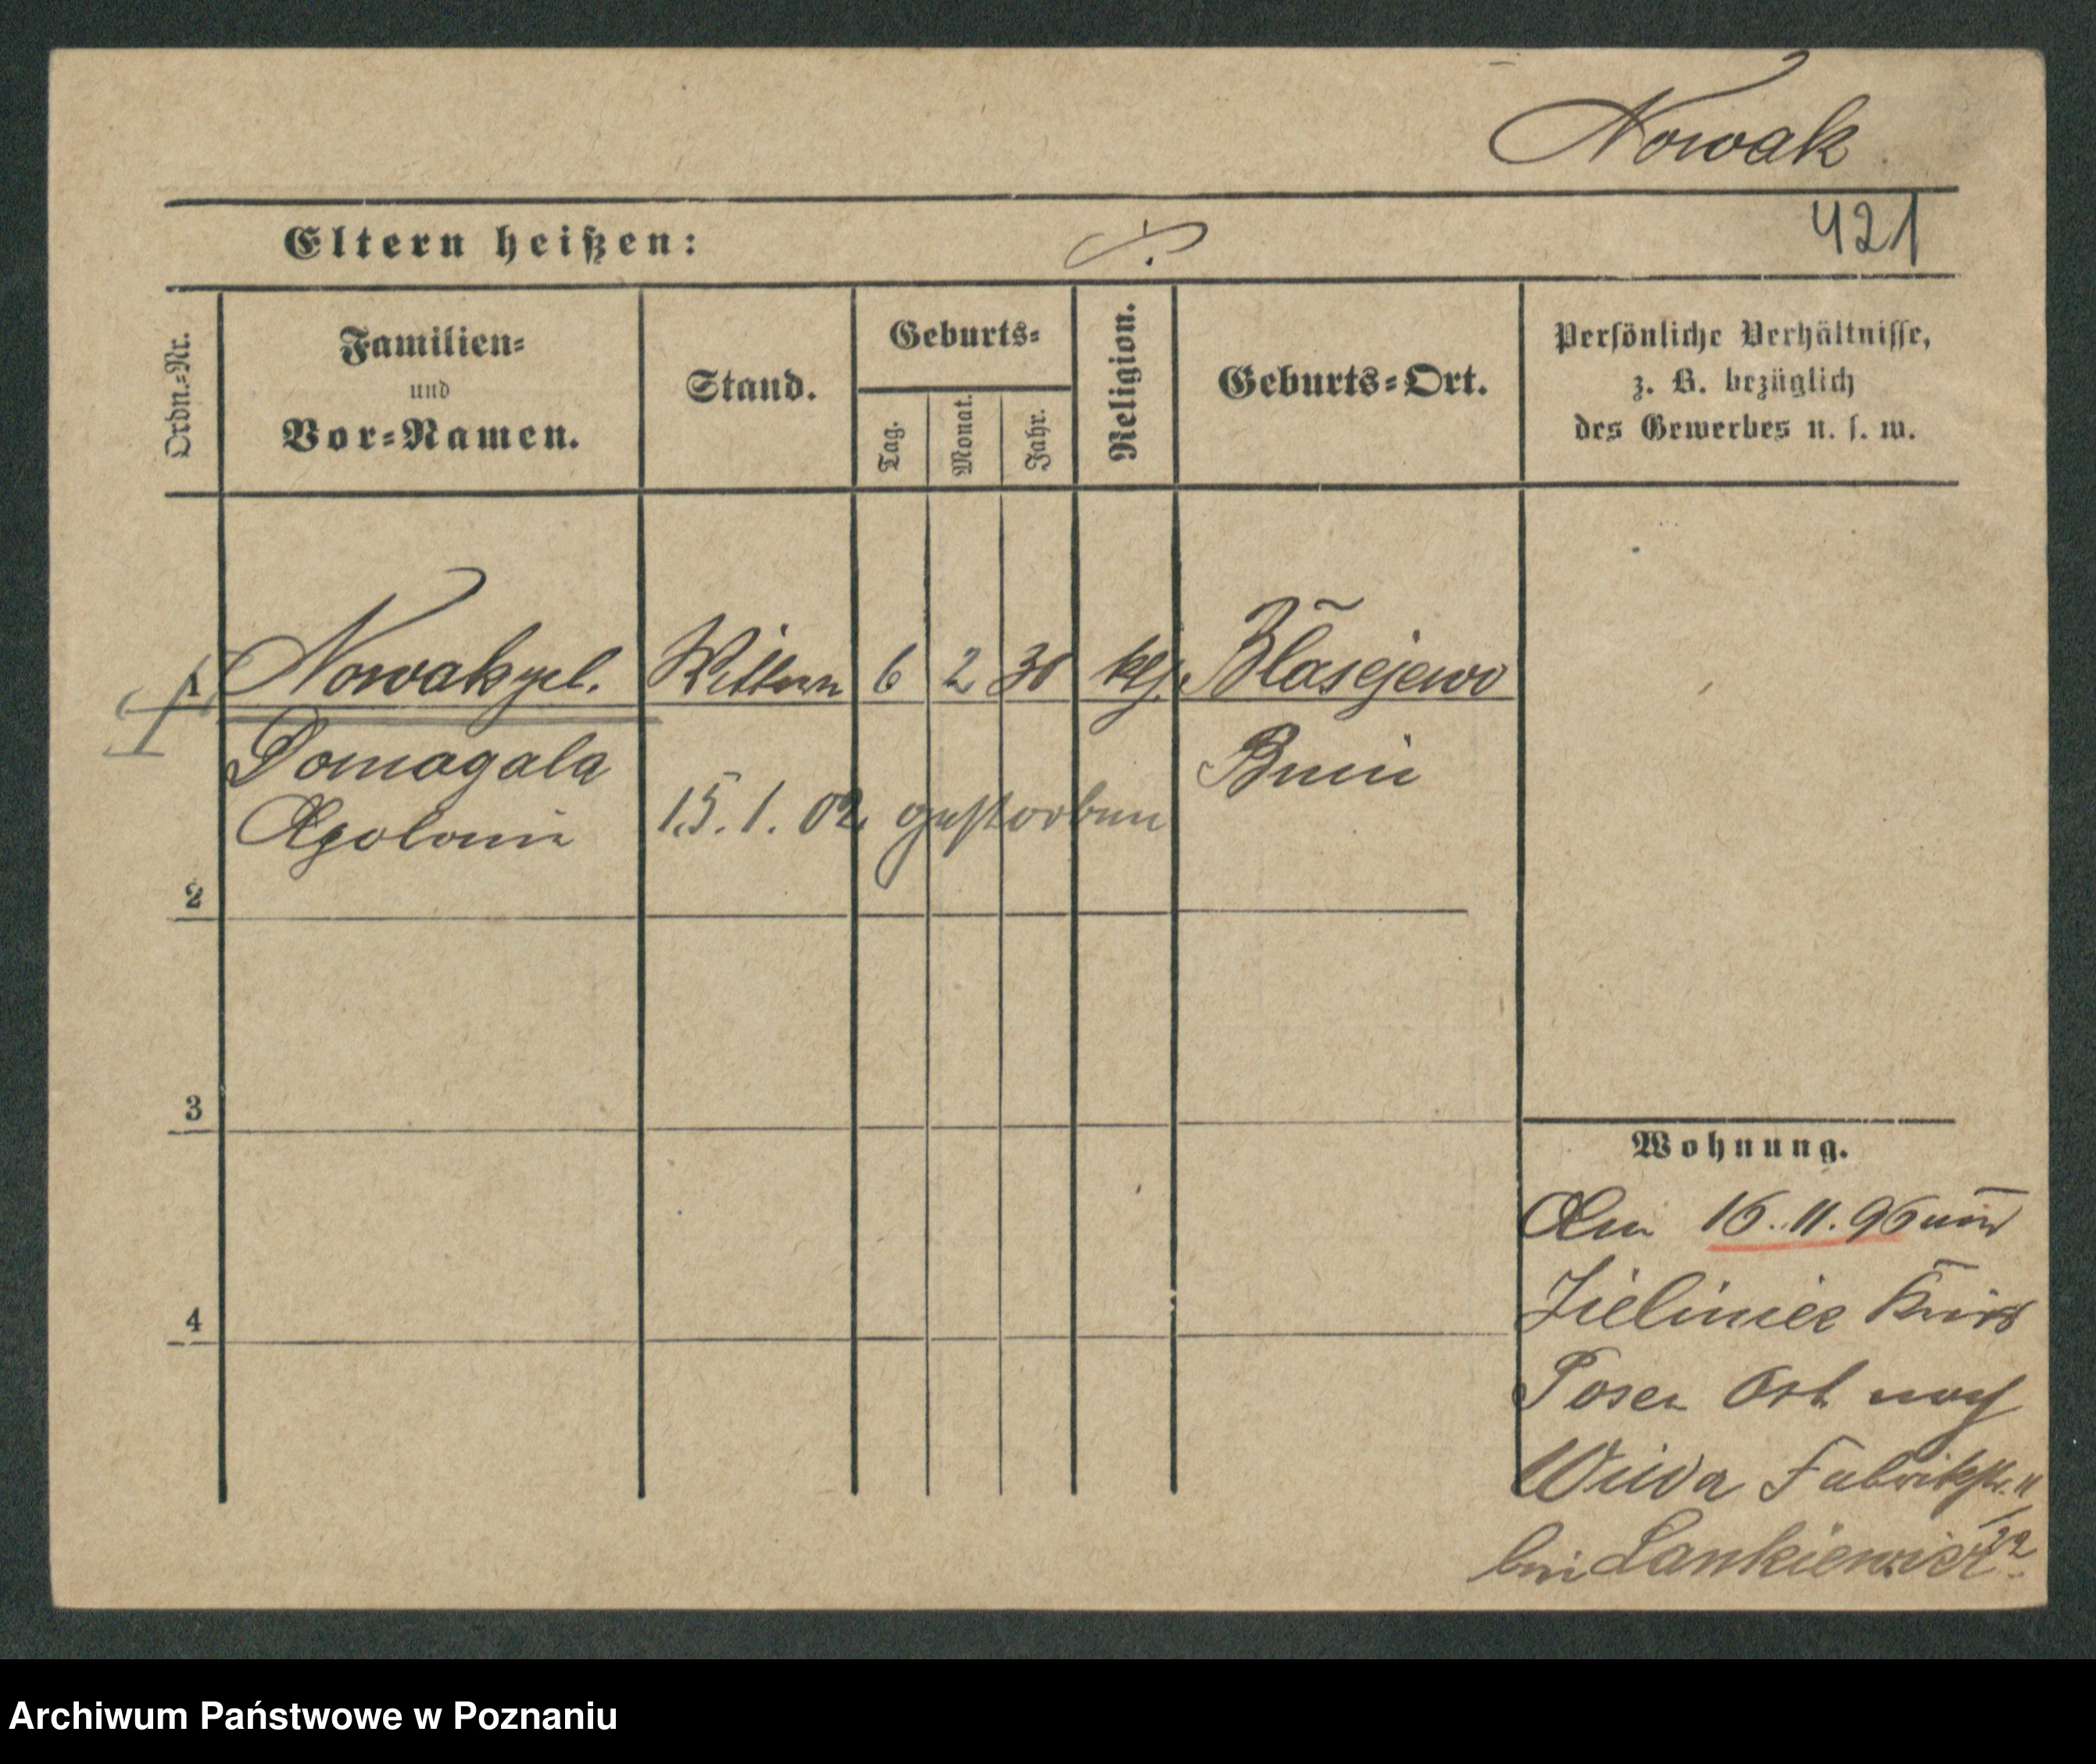 Nowak
Eltern heißen: ·/· 421
Ordn.=Nr.
Familien=
und
Vor=Namen.
Stand.
Geburts=
Tag.
Monat.
Jahr.
Religion.
Geburts=Ort.
Persönliche Verhältnisse,
z. B. bezüglich
des Gewerbes u. s. w.
1 Nowak geb. Wittwe 6 2 30 kth. Blasejewo
Domagala Bnin
Apolonia 15. 1. 02. gestorben
2
3
4
Wohnung.
Am 16. 11. 96 von
Zieliniec Kreis
Posen Ost nach
Wilda Fabrikstr. 11
bei Lankiewicz
Archiwum Państwowe w Poznaniu